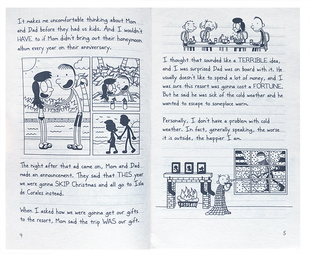 It makes me uncomfortable thinking about Mom
and Dad before they had us kids. And I wouldn't
HAVE to if Mom didn't bring out their honeymoon
album every year on their anniversary.
The night after that ad came on, Mom and Dad
made an announcement. They said that THIS year
we were gonna SKIP Christmas and all go to Isla
de Corales instead.
When I asked how we were gonna get our gifts
to the resort, Mom said the trip WAS our gift.
4
I thought that sounded like a TERRIBLE idea,
and I was surprised Dad was on board with it. He
usually doesn't like to spend a lot of money, and I
was sure this resort was gonna cost a FORTUNE.
But he said he was sick of the cold weather and he
wanted to escape to someplace warm.
Personally, I don't have a problem with cold
weather. In fact, generally speaking, the worse
it is outside, the happier I am.
5